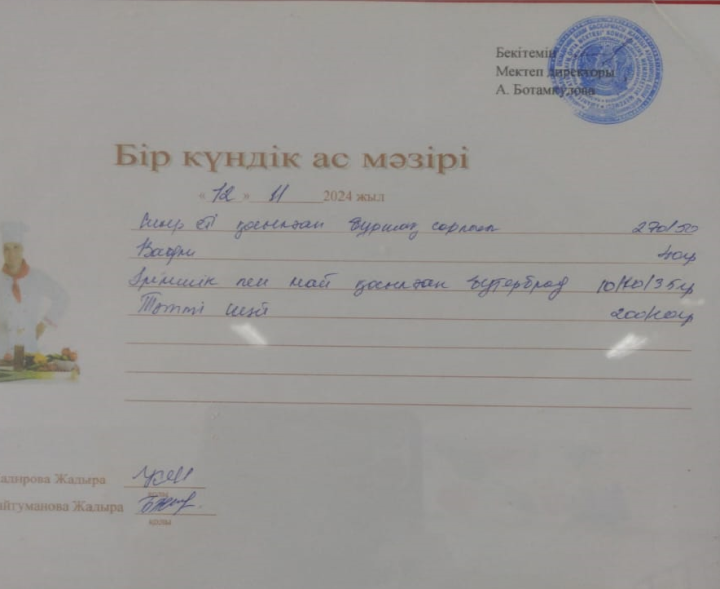 Бекітемін
Мектеп директоры
А. Ботамкулова
Бір күндік ас мәзірі
« 12 » 11 2024 жыл
Сиыр еті қосылған бұршақ сорпасы 270/50
Вафли 40гр
Ірімшік пен май қосылған бутерброд 10/20/35гр
Тәтті шәй 200/20гр
адирова Жадыра
қолы
айтуманова Жадыра
қолы